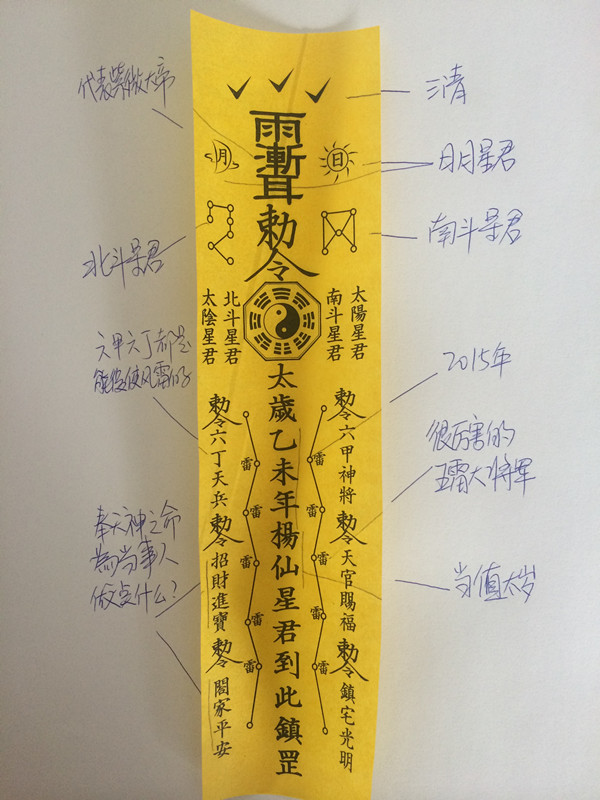 代表紫微大帝
三清
雨漸耳
月
日
日月星君
勅令
南斗星君
北斗星君
太陽星君
南斗星君
北斗星君
太陰星君
六甲六丁都是
能役使风雷的
2015年
很厉害的
五雷大将军
太歲乙未年楊仙星君到此鎮罡
勅令六甲神將
勅令天官賜福
勅令鎮宅光明
雷
雷
雷
雷
雷
雷
雷
雷
雷
雷
勅令六丁天兵
勅令招財進寶
勅令閤家平安
奉天神之命
為当事人
做点什么?
当值太岁